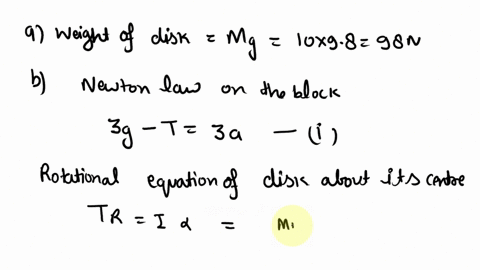 a) Weight of disk = Mg = 10x9.8 = 98N
b) Newton law on the block
3g - T = 3a — (i)
Rotational equation of disk about its centre
TR = I α = M